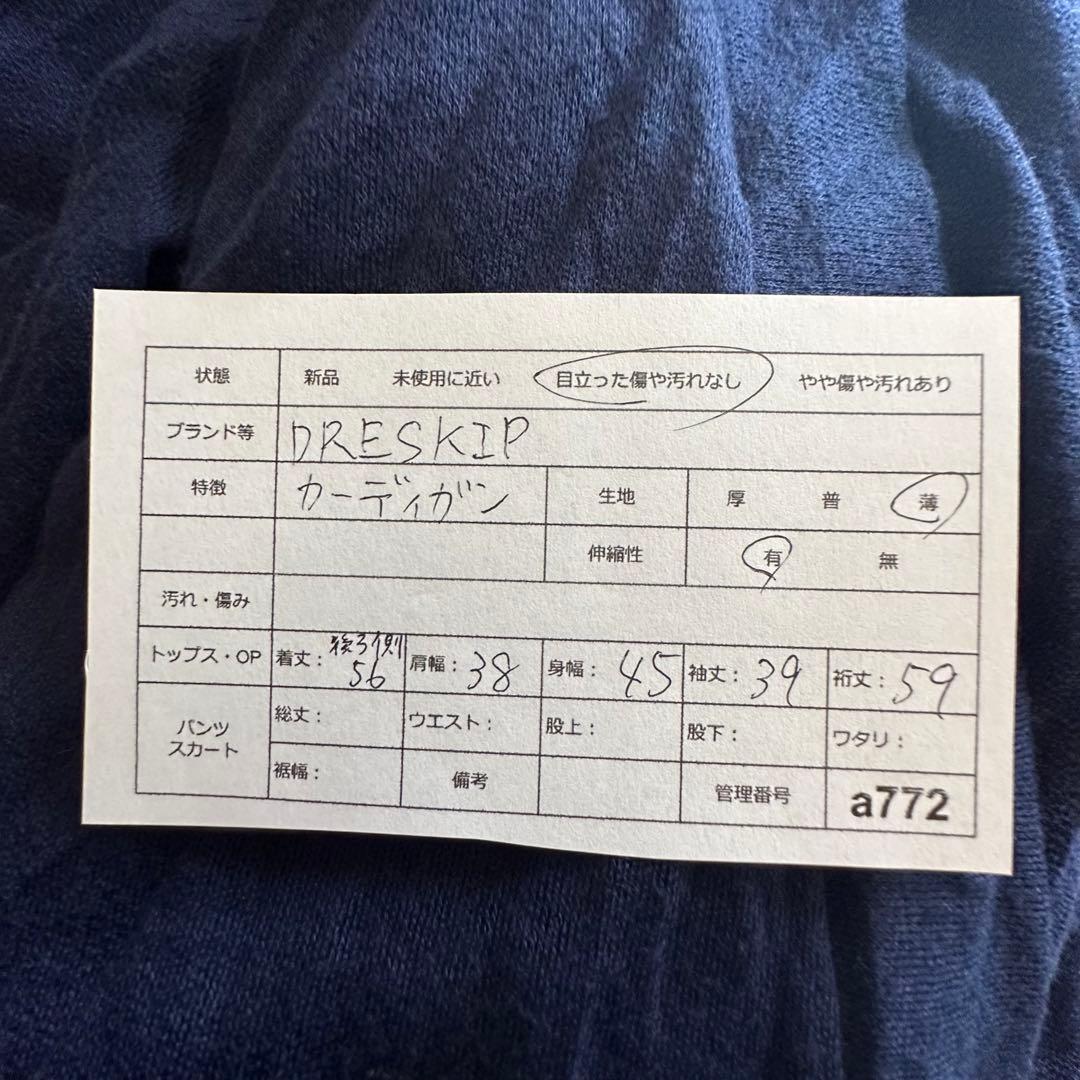 状態 新品 未使用に近い 目立った傷や汚れなし やや傷や汚れあり
ブランド等 DRESKIP
特徴 カーディガン 生地 厚 普 薄
伸縮性 有 無
汚れ・傷み
トップス・OP 着丈：後ろ側 56 肩幅：38 身幅：45 袖丈：39 裄丈：59
パンツ スカート 総丈： ウエスト： 股上： 股下： ワタリ：
裾幅： 備考 管理番号 a772